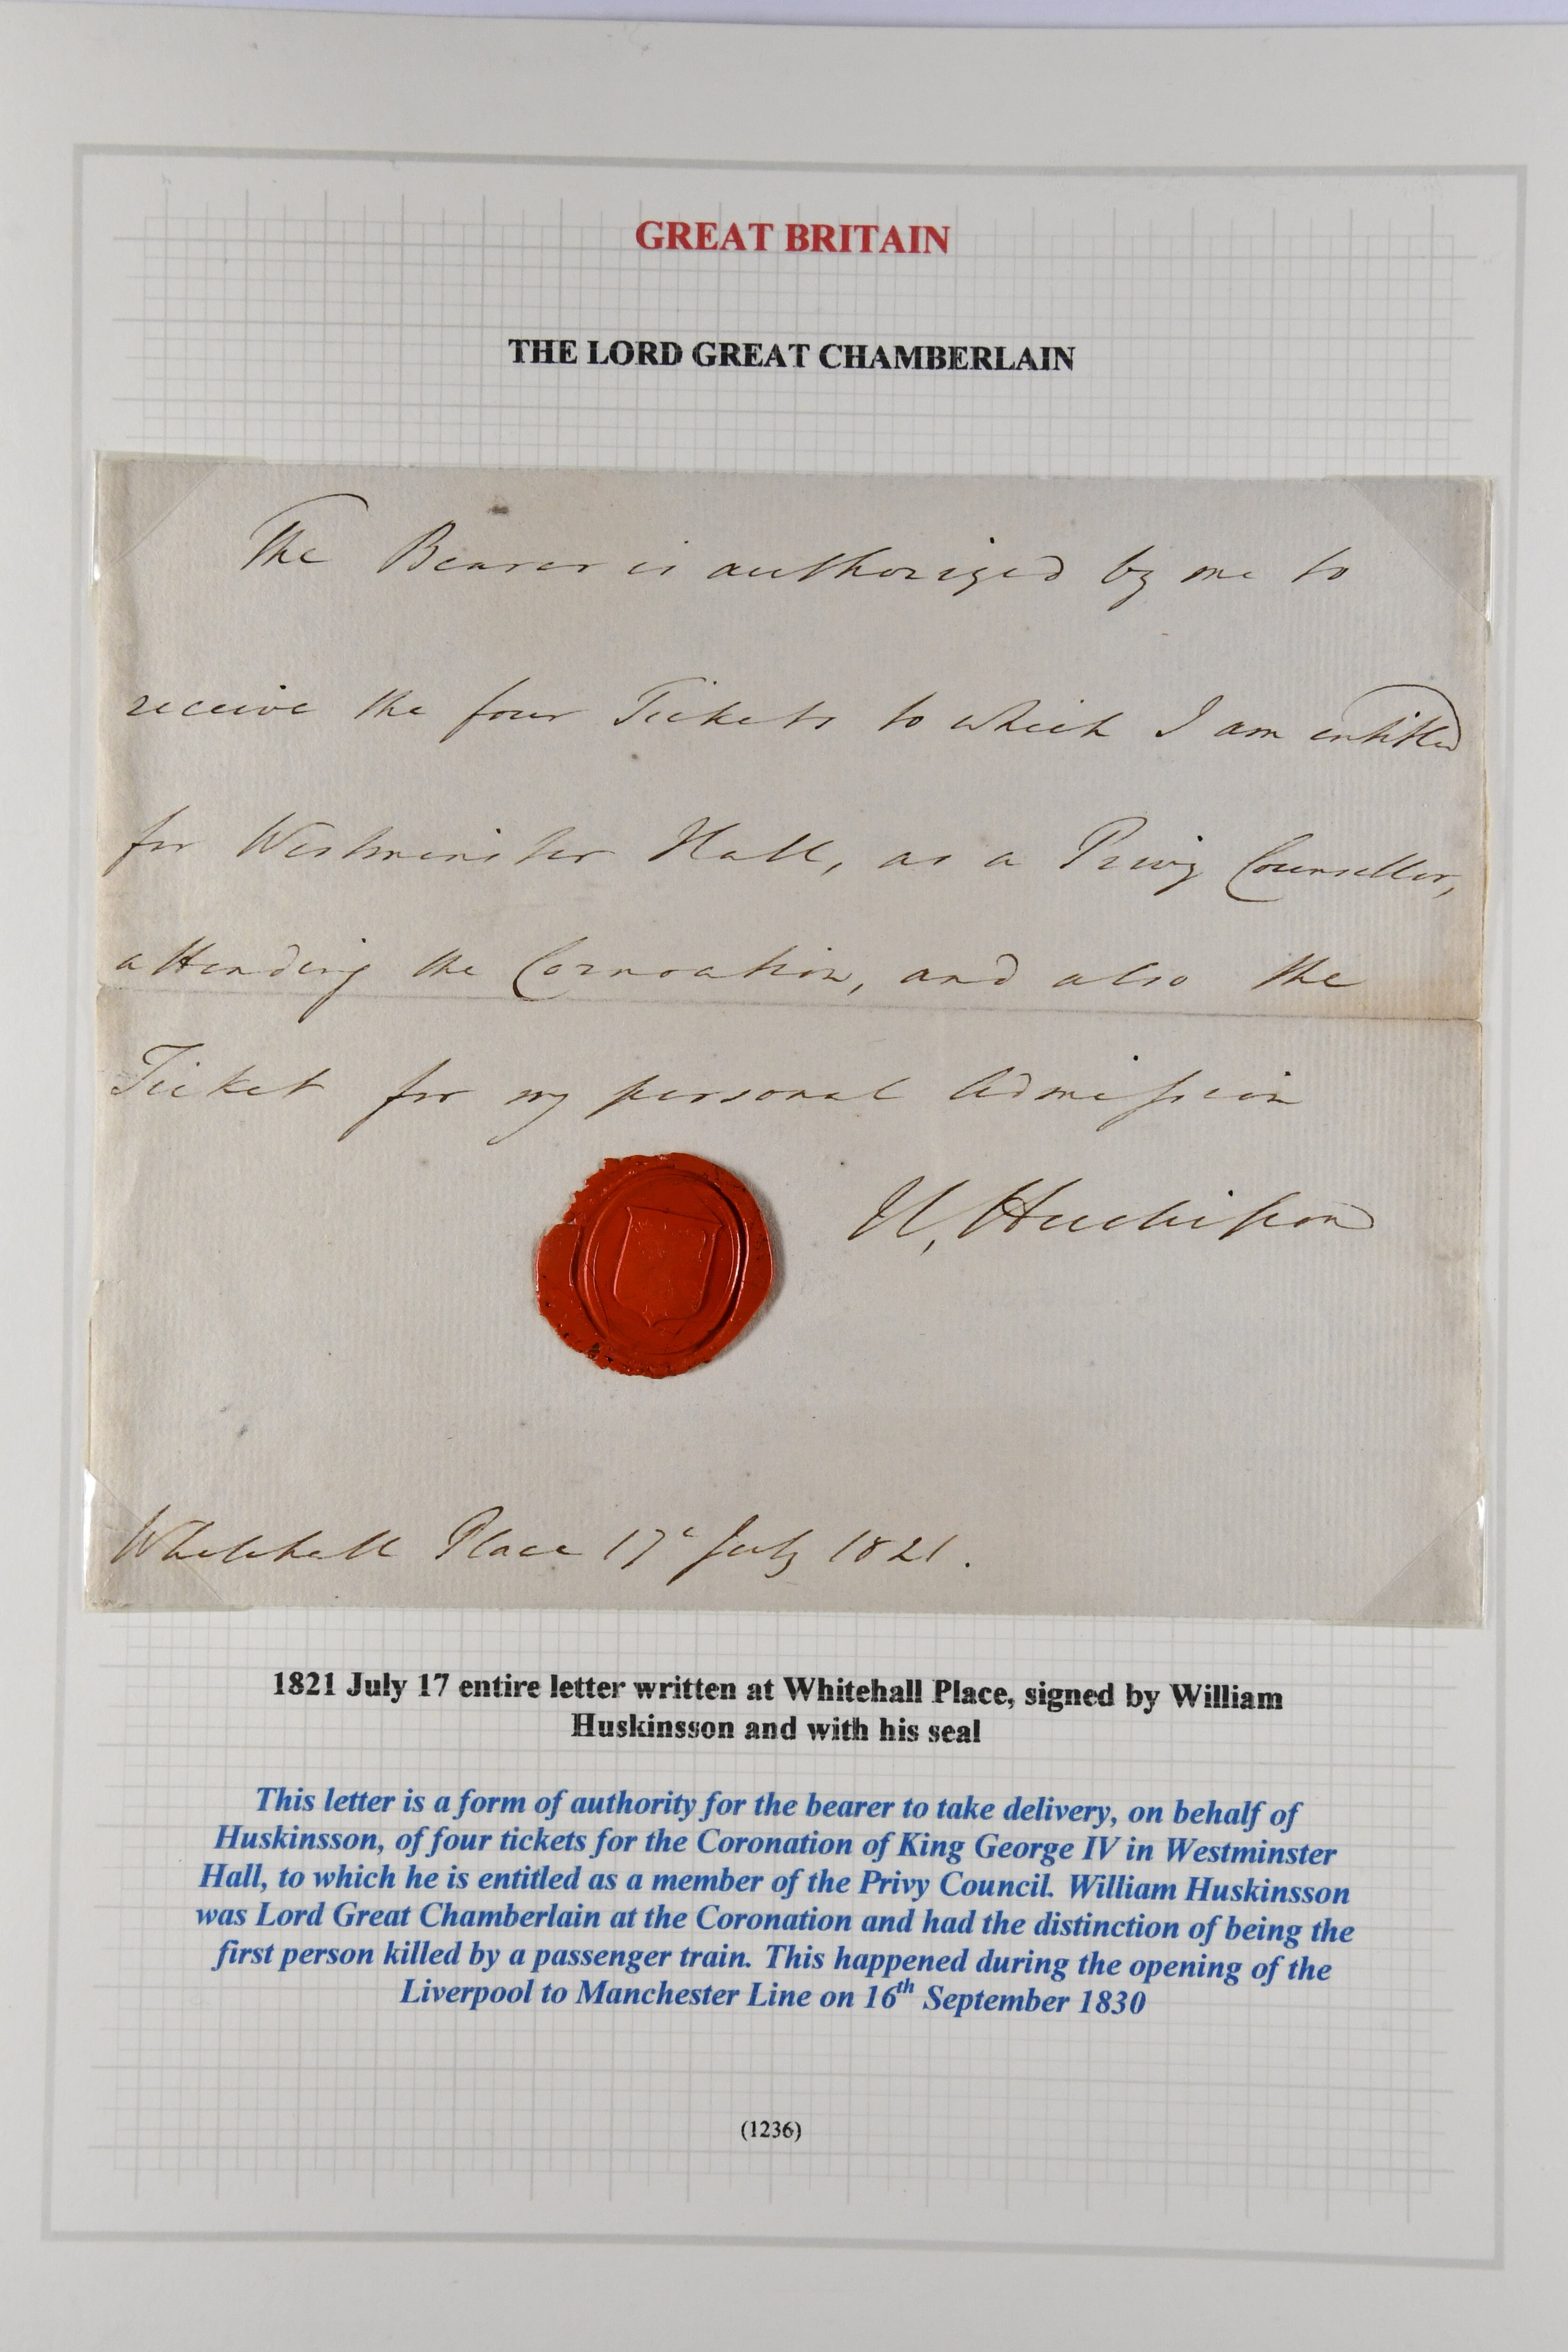 GREAT BRITAIN
THE LORD GREAT CHAMBERLAIN
The Bearer is authorized by me to
receive the four Tickets to which I am entitled
for Westminster Hall, as a Privy Counsellor,
attending the Coronation, and also the
Ticket for my personal Admission
W. Huskisson
Whitehall Place 17th July 1821.
1821 July 17 entire letter written at Whitehall Place, signed by William
Huskinsson and with his seal
This letter is a form of authority for the bearer to take delivery, on behalf of
Huskinsson, of four tickets for the Coronation of King George IV in Westminster
Hall, to which he is entitled as a member of the Privy Council. William Huskinsson
was Lord Great Chamberlain at the Coronation and had the distinction of being the
first person killed by a passenger train. This happened during the opening of the
Liverpool to Manchester Line on 16th September 1830
(1236)